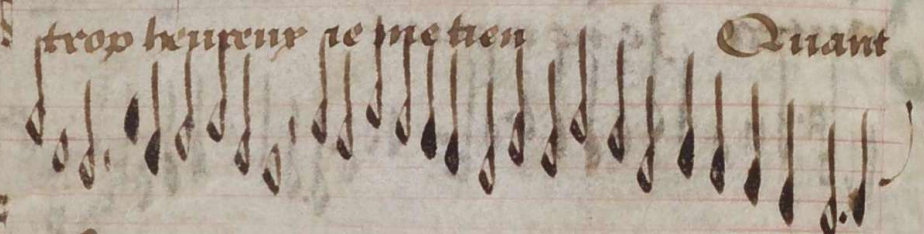 trop heureux ie me tien Quant